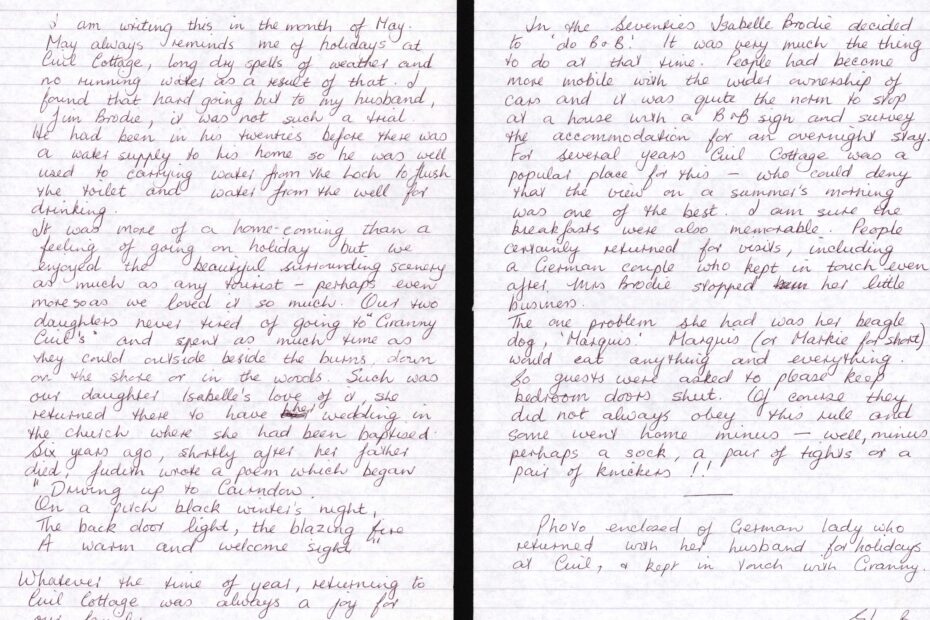 I am writing this in the month of May.
May always reminds me of holidays at
Cuil Cottage, long dry spells of weather and
no running water as a result of that. I
found that hard going but to my husband,
Jim Brodie, it was not such a trial.
He had been in his twenties before there was
a water supply to his home so he was well
used to carrying water from the Loch to flush
the toilet and water from the well for
drinking.
It was more of a home-coming than a
feeling of going on holiday but we
enjoyed the beautiful surrounding scenery
as much as any tourist - perhaps even
more so as we loved it so much. Our two
daughters never tired of going to "Granny
Cuil's" and spent as much time as
they could outside beside the burns, down
on the shore or in the woods. Such was
our daughter Isabelle's love of it, she
returned there to have her wedding in
the church where she had been baptised.
Six years ago, shortly after her father
died, Judith wrote a poem which began
"Driving up to Cairndow
On a pitch black winter's night,
The back door light, the blazing fire
A warm and welcome sight"
Whatever the time of year, returning to
Cuil Cottage was always a joy for
our family
In the Seventies Isabelle Brodie decided
to 'do B&B'. It was very much the thing
to do at that time. People had become
more mobile with the wider ownership of
cars and it was quite the norm to stop
at a house with a B&B sign and survey
the accommodation for an overnight stay.
For several years Cuil Cottage was a
popular place for this - who could deny
that the view on a summer's morning
was one of the best. I am sure the
breakfasts were also memorable. People
certainly returned for visits, including
a German couple who kept in touch even
after Mrs Brodie stopped her little
business.
The one problem she had was her beagle
dog, 'Marquis'. Marquis (or Markie for short)
would eat anything and everything.
So guests were asked to please keep
bedroom doors shut. Of course they
did not always obey this rule and
some went home minus - well, minus
perhaps a sock, a pair of tights or a
pair of knickers !!
Photo enclosed of German lady who
returned with her husband for holidays
at Cuil, & kept in touch with Granny.